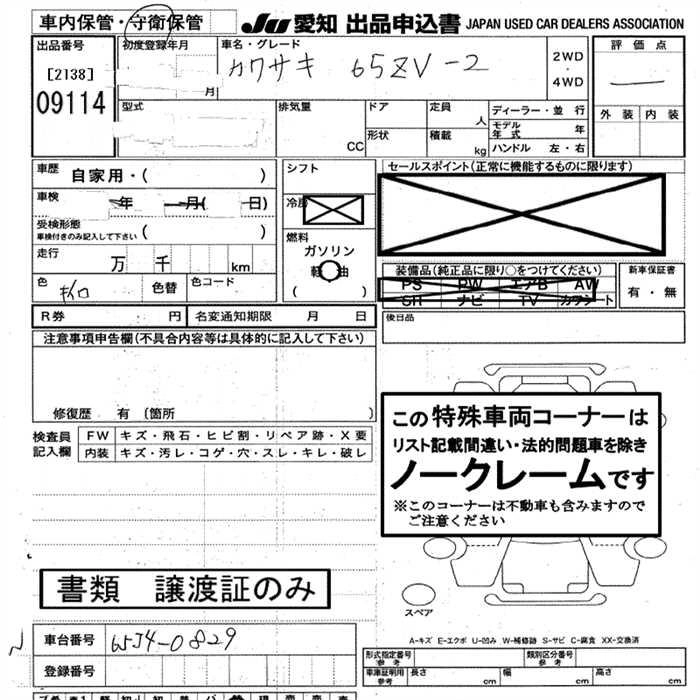 車内保管・守衛保管
JU 愛知 出品申込書 JAPAN USED CAR DEALERS ASSOCIATION
出品番号
[2138]
09114
初度登録年月
月
車名・グレード
カワサキ 65ZV-2
2WD
・
4WD
評価点
外装 内装
型式
排気量
CC
ドア
形状
定員
人
積載
kg
ディーラー・並行
モデル年式 年
ハンドル 左・右
車歴
自家用・( )
車検 年 月( 日)
受検形態
車検付きのみ記入して下さい ( )
走行
万 千 km
色
色替
色コード
シフト
冷房
燃料
ガソリン
軽油
( )
セールスポイント(正常に機能するものに限ります)
装備品(純正品に限り○をつけてください)
PS PW エアB AW
SR ナビ TV カワシート
新車保証書
有・無
R券 円
名変通知期限 月 日
後日品
注意事項申告欄(不具合内容等は具体的に記入して下さい)
修復歴 有 〔箇所 〕
検査員記入欄
FW キズ・飛石・ヒビ割・リペア跡・X要
内装 キズ・汚レ・コゲ・穴・スレ・キレ・破レ
この特殊車両コーナーは
リスト記載間違い・法的問題車を除き
ノークレームです
※このコーナーは不動車も含みますので
ご注意ください
書類 譲渡証のみ
スペア
A-キズ E-エクボ U-凹み W-補修跡 S-サビ C-腐食 XX-交換済
車台番号 65J4-0829
登録番号
型式指定番号 参考
類別区分番号 参考
車庫証明用 参考
長さ cm
幅 cm
高さ cm